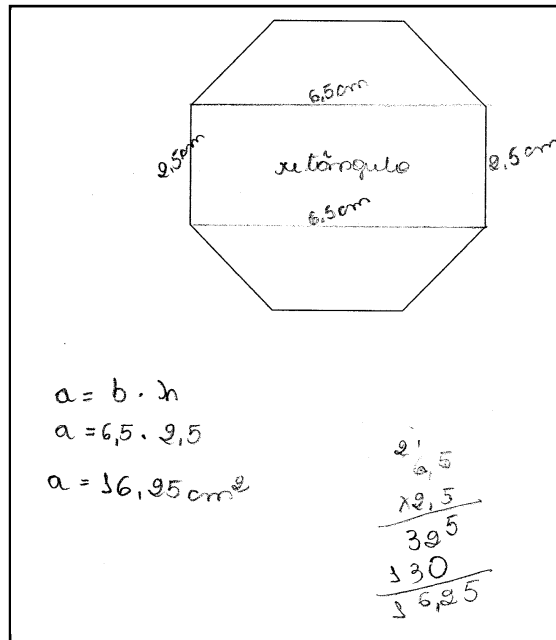 6,5cm
2,5cm
retângulo
2,5cm
6,5cm
a = b . h
a = 6,5 . 2,5
a = 16,25 cm²
2 1
6,5
x2,5
325
130
16,25